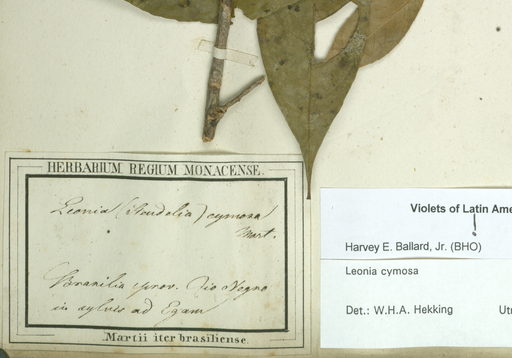 HERBARIUM REGIUM MONACENSE.
Leonia (Steudelia) cymosa
Mart.
Brasilia prov. Rio Negro
in sylvis ad Egam
Martii iter brasiliense.
Violets of Latin Ame
!
Harvey E. Ballard, Jr. (BHO)
Leonia cymosa
Det.: W.H.A. Hekking
Utr